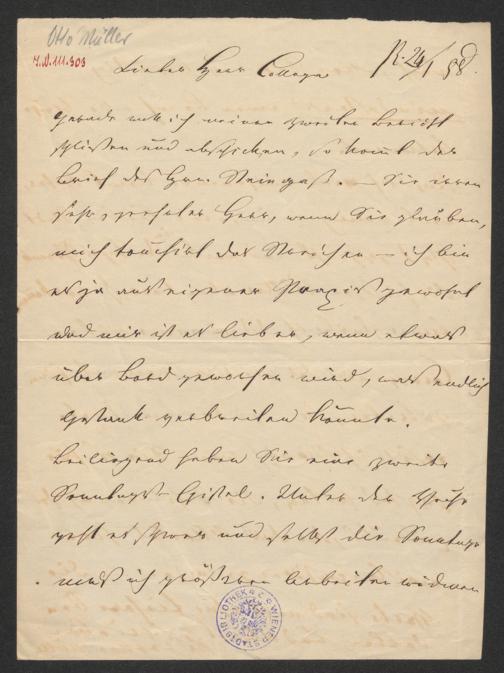 Otto Müller
Lieber Herr College
R. 24/1 58.
gerade will ich meinen zweiten Bericht
schließen und abschicken, so kommt der
Brief des Hrn. Steingaß. — Sie irren
sehr, geehrter Herr, wenn Sie glauben,
mich touchirt das Streichen — ich bin
es ja aus eigener Praxis gewohnt
und mir ist es lieber, wenn etwas
über Bord geworfen wird, was endlich
Gestank verbreiten könnte.
Beiliegend haben Sie eine zweite
Sonntags-Epistel. Unter der Woche
geht es schwer und selbst die Sonntage
muß ich größeren Arbeiten widmen
WIENER STADTBIBLIOTHEK